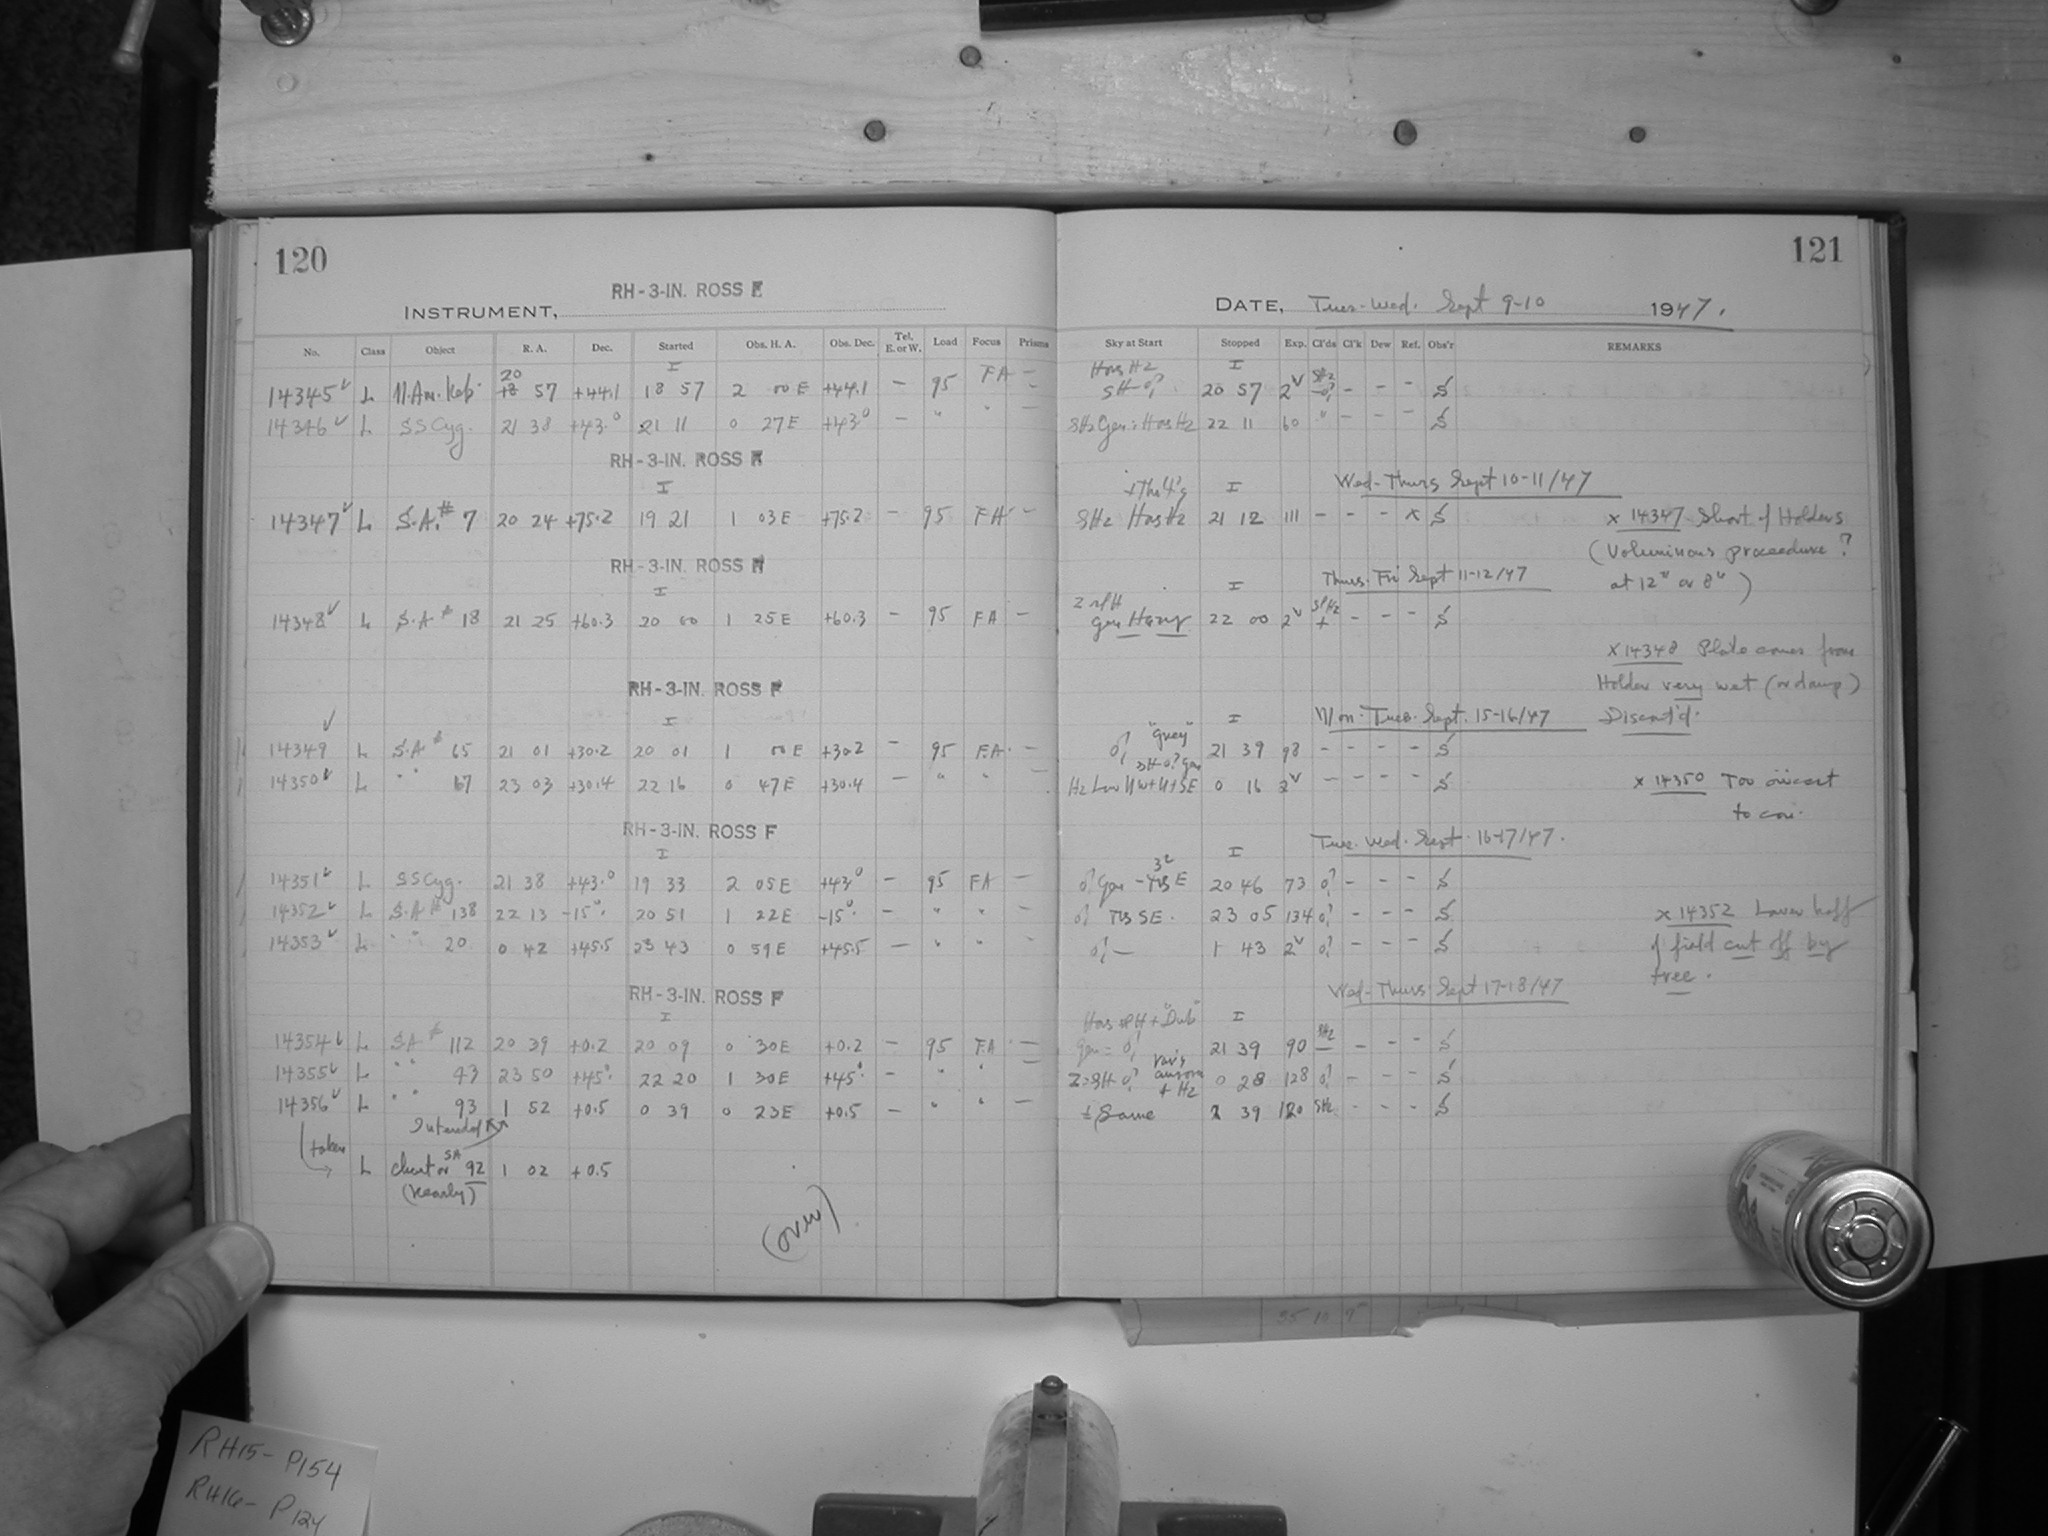 120
121
RH-3-IN. ROSS F
INSTRUMENT,
DATE, Tues-Wed. Sept 9-10 1947.
No. Class Object R. A. Dec. Started Obs. H. A. Obs. Dec. Tel. E. or W. Load Focus Prisms Sky at Start Stopped Exp. Cl'ds Cl'k Dew Ref. Obs'r REMARKS
20 I FA Has Hz I SHz
14345 L N.Am. 57 +44.1 18 57 2 00 E +44.1 - 95 - 20 57 2 - - - S
14346 L SS Cyg. 21 38 +43.0 21 11 0 27 E +43.0 - " " - SHz Gen: Has Hz 22 11 60 " - - - S
RH-3-IN. ROSS F
I I Wed-Thurs Sept 10-11/47
14347 L S.A. # 7 20 24 +75.2 19 21 1 03 E +75.2 - 95 FA - SHz Has Hz 21 12 111 - - - x S x 14347 Short of Holders
(Voluminous proceedure ?
RH-3-IN. ROSS F
I I Thurs-Fri Sept 11-12/47 at 12" or 8")
14348 L S.A. # 18 21 25 +60.3 20 00 1 25 E +60.3 - 95 FA - gen Hazy 22 00 2 + - - - S
x 14348 Plate comes from
Holder very wet (or damp)
RH-3-IN. ROSS F
I "Grey" I Mon-Tues. Sept. 15-16/47 Discont'd.
14349 L S.A # 65 21 01 +30.2 20 01 1 00 E +30.2 - 95 FA - 21 39 98 - - - - S
14350 L " " 67 23 03 +30.4 22 16 0 47 E +30.4 - " " - Hz Low NW+N+SE 0 16 2 - - - - S x 14350 Too
to
RH-3-IN. ROSS F
I I Tues. Wed. Sept 16-17/47.
14351 L SS Cyg. 21 38 +43.0 19 33 2 05 E +43.0 - 95 FA - Gen E 20 46 73 - - - S
14352 L S.A # 138 22 13 -15°. 20 51 1 22 E -15°. - " " - SE. 23 05 134 - - - S x 14352 Lower half
14353 L " " 20 0 42 +45.5 23 43 0 59 E +45.5 - " " - 1 43 2 - - - S of field cut off by
tree.
RH-3-IN. ROSS F
I I Wed-Thurs Sept 17-18/47
14354 L SA # 112 20 39 +0.2 20 09 0 30 E +0.2 - 95 FA - gen = 21 39 90 - - - S
14355 L " " 43 23 50 +45°. 22 20 1 30 E +45°. - " " - aurora + Hz 0 28 128 - - - S
14356 L " " 93 1 52 +0.5 0 39 0 23 E +0.5 - " " - ± Same 2 39 120 SHz - - - S
Intended
(taken L chart or SA 92 1 02 +0.5
(nearly)
(over)
RH15- P154
RH16- P124